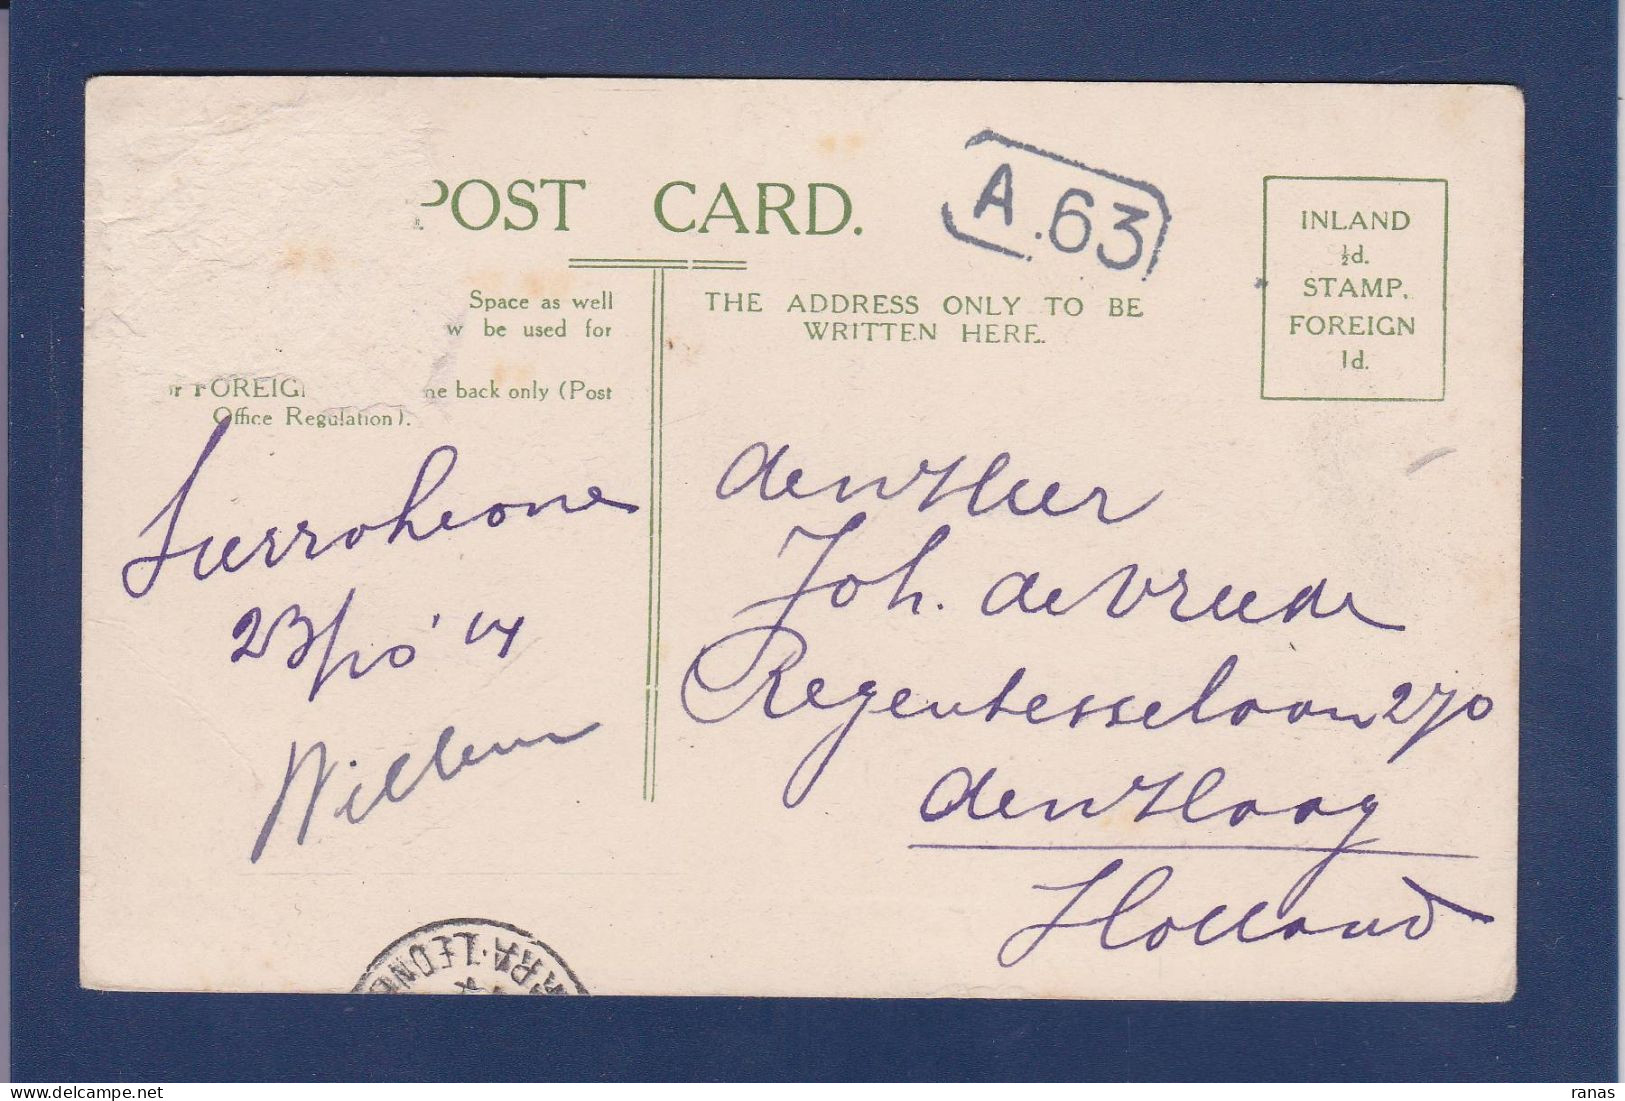 POST CARD.
A.63
INLAND
½d.
STAMP.
FOREIGN
1d.
Space as well
w be used for
THE ADDRESS ONLY TO BE
WRITTEN HERE.
r FOREIG ne back only (Post
Office Regulation).
Sierra Leone
23/10 '14
Willem
den Heer
Joh. de Vreede
Regentesselaan 270
den Haag
Holland
RRA·LEONE
ranas